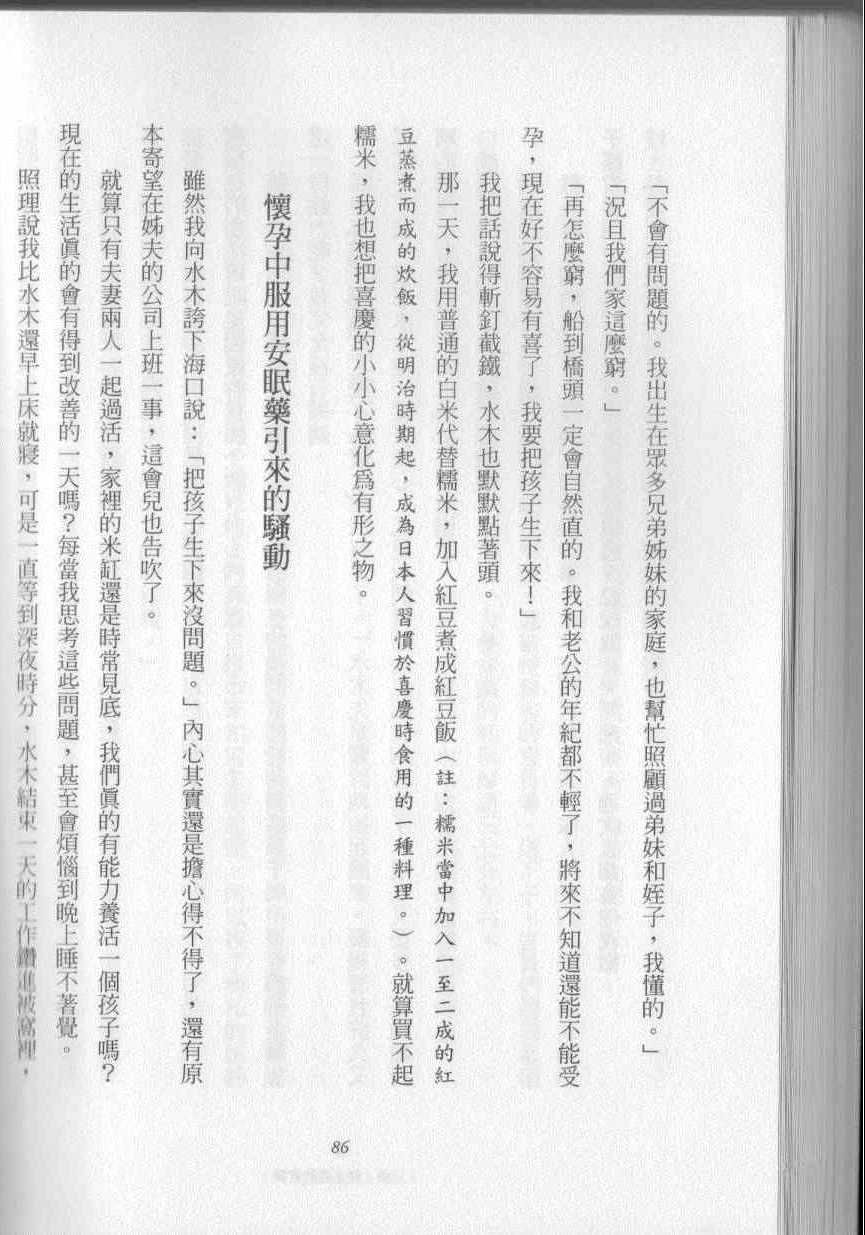 「不會有問題的。我出生在眾多兄弟姊妹的家庭，也幫忙照顧過弟妹和姪子，我懂的。」
「況且我們家這麼窮。」
「再怎麼窮，船到橋頭一定會自然直的。我和老公的年紀都不輕了，將來不知道還能不能受
孕，現在好不容易有喜了，我要把孩子生下來！」
我把話說得斬釘截鐵，水木也默默點著頭。
那一天，我用普通的白米代替糯米，加入紅豆煮成紅豆飯（註：糯米當中加入一至二成的紅
豆蒸煮而成的炊飯，從明治時期起，成為日本人習慣於喜慶時食用的一種料理。）。就算買不起
糯米，我也想把喜慶的小小心意化爲有形之物。
懷孕中服用安眠藥引來的騷動
雖然我向水木誇下海口說：「把孩子生下來沒問題。」內心其實還是擔心得不得了，還有原
本寄望在姊夫的公司上班一事，這會兒也告吹了。
就算只有夫妻兩人一起過活，家裡的米缸還是時常見底，我們眞的有能力養活一個孩子嗎？
現在的生活眞的會有得到改善的一天嗎？每當我思考這些問題，甚至會煩惱到晚上睡不著覺。
照理說我比水木還早上床就寢，可是一直等到深夜時分，水木結束一天的工作鑽進被窩裡，
86